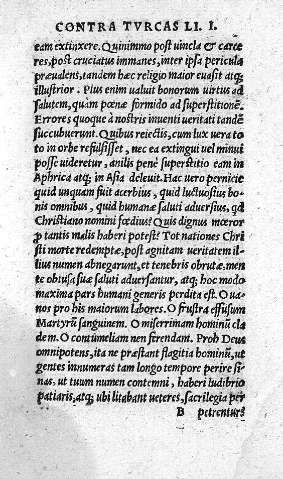 CONTRA TVRCAS LI. I.
eam extinxere. Quinimmo post uincla & carce
res, post cruciatus immanes, inter ipsa pericula
præualens, tandem hæc religio maior euasit atq;
illustrior. Plus enim ualuit bonorum uirtus ad
salutem, quam pœnæ formido ad superstitionẽ.
Errores quoque à nostris inuenti ueritati tandẽ
succubuerunt. Quibus reiectis, cum lux uera to
to in orbe refulsisset, nec ea extingui uel minui
posse uideretur, anilis penè superstitio eam in
Aphrica atq; in Asia deleuit. Hac uero pernicie
quid unquam fuit acerbius, quid luctuosius bo-
nis omnibus, quid humanæ saluti aduersius, qd
Christiano nomini fœdius? Quis dignus mœror
p tantis malis haberi potest? Tot nationes Chri
sti morte redemptæ, post agnitam ueritatem il-
lius numen abnegarunt, et tenebris obrutæ, men
te obtusa suæ saluti aduersantur, atq; hoc modo
maxima pars humani generis perdita est. O ua-
nos pro his maiorum labores. O frustra effusum
Martyrũ sanguinem. O miserrimam hominũ cla
dem. O contumeliam non ferendam. Proh Deus
omnipotens, ita ne præstant flagitia hominũ, ut
gentes innumeras tam longo tempore perire si-
nas, ut tuum numen contemni, haberi ludibrio
patiaris, atq; ubi litabant ueteres, sacrilegia per
B petrentur?